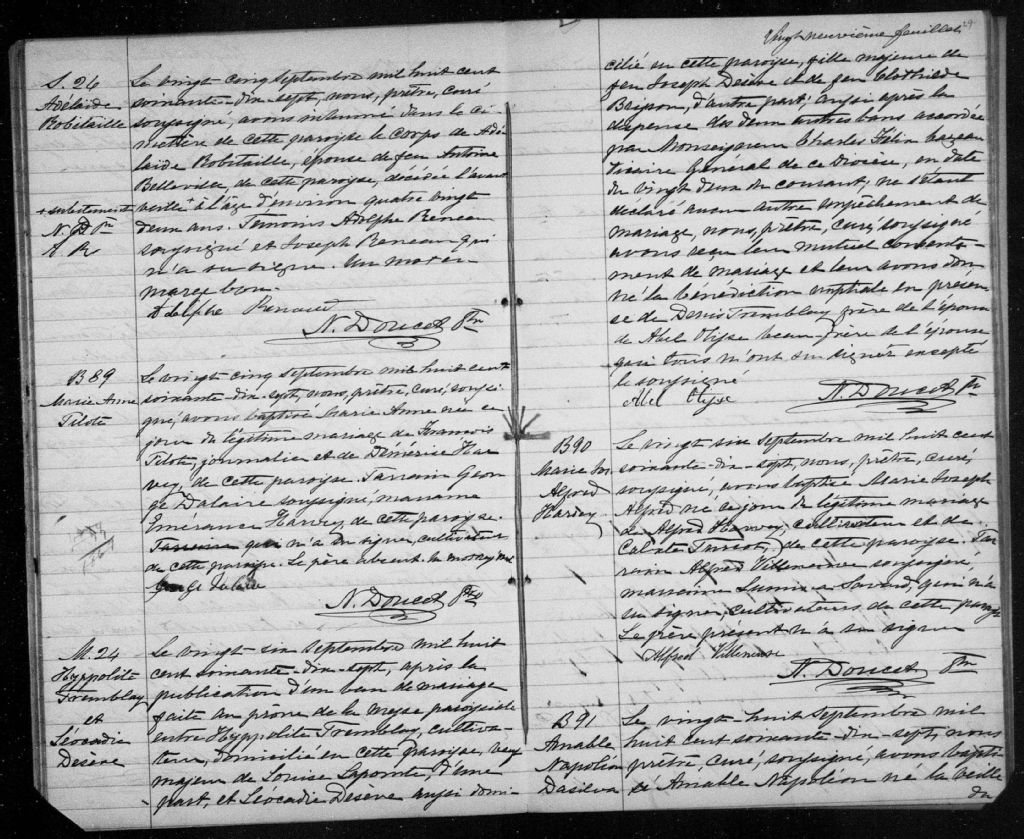 S. 26
Adélaide
Robitaille
+ subitement
N. D. Ptre
A. R
Le vingt cinq Septembre mil huit cent
soixante-dix-sept, nous, prêtre, curé
soussigné, avons inhumé dans le ci-
metière de cette paroisse le corps de Adé-
laide Robitaille, épouse de feu Antoine
Belleville, de cette paroisse, décédée l'avant
veille + à l'âge d'environ quatre vingt
deux ans. Témoins Adolphe Reneau
soussigné et Joseph Reneau qui
n'a su signer. Un mot en
marge bon.
Adolphe Renaud
N. Doucet Ptre
B 89
Marie Anne
Pilote
Le vingt cinq Septembre mil huit cent
soixante-dix-sept, nous, prêtre, curé, soussi-
gné, avons baptisé Marie Anne née ce
jour du légitime mariage de François
Pilote, journalier et de Démérise Har-
vey, de cette paroisse. Parrain Geor-
ge Dalaire soussigné, marraine
Emérance Harvey, de cette paroisse.
qui n'a su signer, cultivateurs
de cette paroisse. Le père absent.
George Dalaire
N. Doucet Ptre
M. 24
Hyppolite
Tremblay
et
Léocadie
Désève
Le vingt six Septembre mil huit
cent soixante-dix-sept, après la
publication d'un ban de mariage
faite au prône de la messe paroissiale
entre Hyppolite Tremblay, cultiva-
teur, domicilié en cette paroisse, veuf
majeur de Louise Lapointe, d'une
part, et Léocadie Désève aussi domi-
Vingt neuvième feuillet
29
ciliée en cette paroisse, fille majeure de
feu Joseph Désève et de feu Clothilde
Brisson, d'autre part; aussi après la
dispense des deux autres bans accordée
par Monseigneur Charles Félix Cazeau
Vicaire Général de ce Diocèse, en date
du vingt deux du courant; ne s'étant
déclaré aucun autre empêchement de
mariage, nous, prêtre, curé, soussigné
avons reçu leur mutuel consente-
ment de mariage et leur avons don-
né la bénédiction nuptiale en présen-
se de Denis Tremblay, frère de l'époux
de Abel Ulysse beau-frère de l'épouse
qui tous n'ont su signer excepté
le soussigné
Abel Olysse
N. Doucet Ptre
B 90
Marie Jos.
Alfred
Harvey
Le vingt six Septembre mil huit cent
soixante-dix-sept, nous, prêtre, curé,
soussigné, avons baptisé Marie Joseph
Alfred né ce jour du légitime mariage
de Alfred Harvey, cultivateur et de
Turcot, de cette paroisse. Par-
rain Alfred Villeneuve soussigné,
marraine Savard, qui n'a
su signer, cultivateurs de cette paroisse
Le père présent n'a su signer
Alfred Villeneuve
N. Doucet Ptre
B 91
Amable
Napoléon
Dasilva
Le vingt-huit Septembre mil
huit cent soixante-dix-sept, nous
prêtre, curé, soussigné, avons bapti-
sé Amable Napoléon né la veille
du